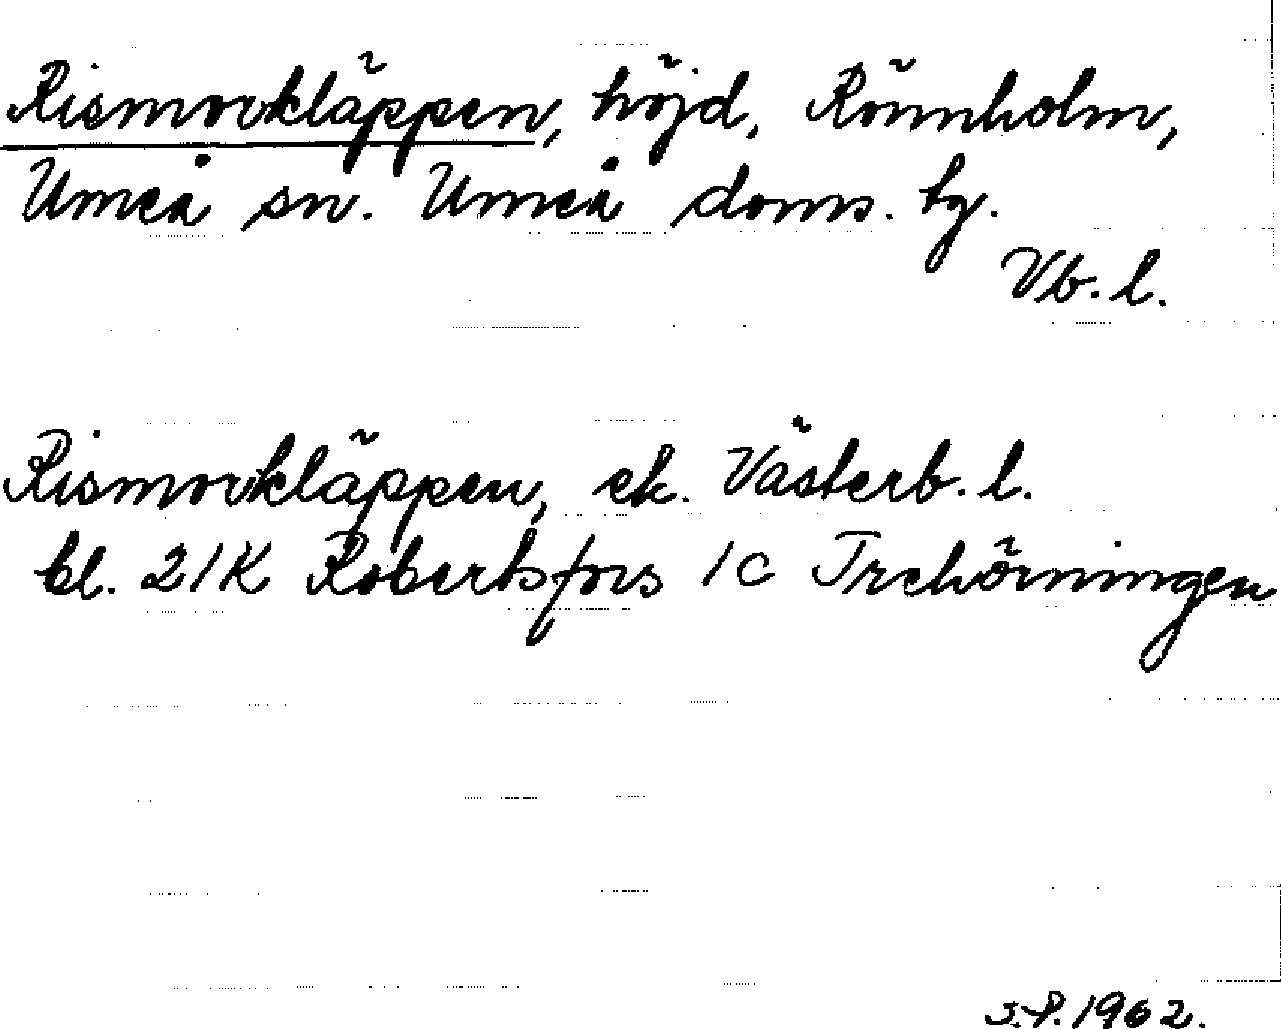 Rismorkläppen, höjd, Rönnholm,
Umeå sn. Umeå doms. tg.
Vb. l.
Rismorkläppen, ek. Västerb. l.
bl. 21K Robertsfors 1c Trehörningen
J.P. 1962.